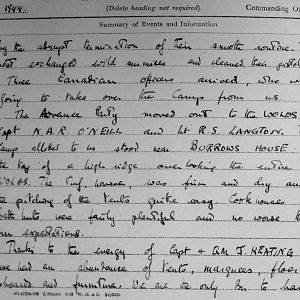 1944.
(Delete heading not required).
Commanding O
Summary of Events and Information
the abrupt termination of their smooth routine.
exchanged wild surmises and cleaned their
Three Canadian officers arrived, who w
going to take over the Camp from us.
The Advance Party moved out to the WOLDS
Capt N.A.R. O'NEILL and Lt R.S. LANGTON.
Camp allotted to us stood near BURROWS HOUSE
top of a high ridge overlooking the entire
WOLDS. The turf, however, was firm and dry an
the pitching of the tents quite easy. Cookhouses
were fairly plentiful and no worse th
expectations.
Thanks to the energy of Capt & QM J. KEATING
we had an abundance of tents, marquees, floor
and furniture. We are the only Bn. to hav